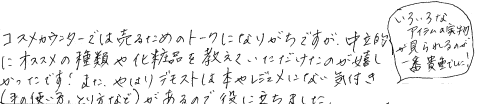 コスメカウンターでは売るためのトークになりがちですが、中立的
にオススメの種類や化粧品を教えていただけたのが嬉し
かったです！また、やはりデモストは本やレジュメにない気付き
(手の使い方、とり方など)があるので役に立ちました。
いろいろな
アイテムの実物
が見られるのが
一番貴重でした！